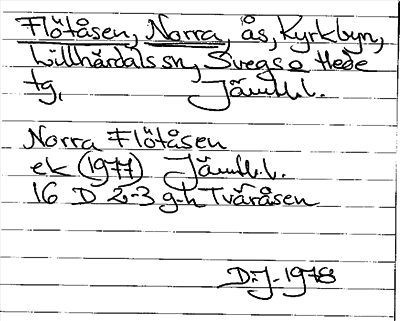 Flötåsen, Norra, ås, Kyrkbyn,
Lillhärdals sn, Svegs o Hede
tg, Jämtl.l.
Norra Flötåsen
ek (1977) Jämtl.l.
16 D 2-3 g-h Tvåråsen
D.J. 1978